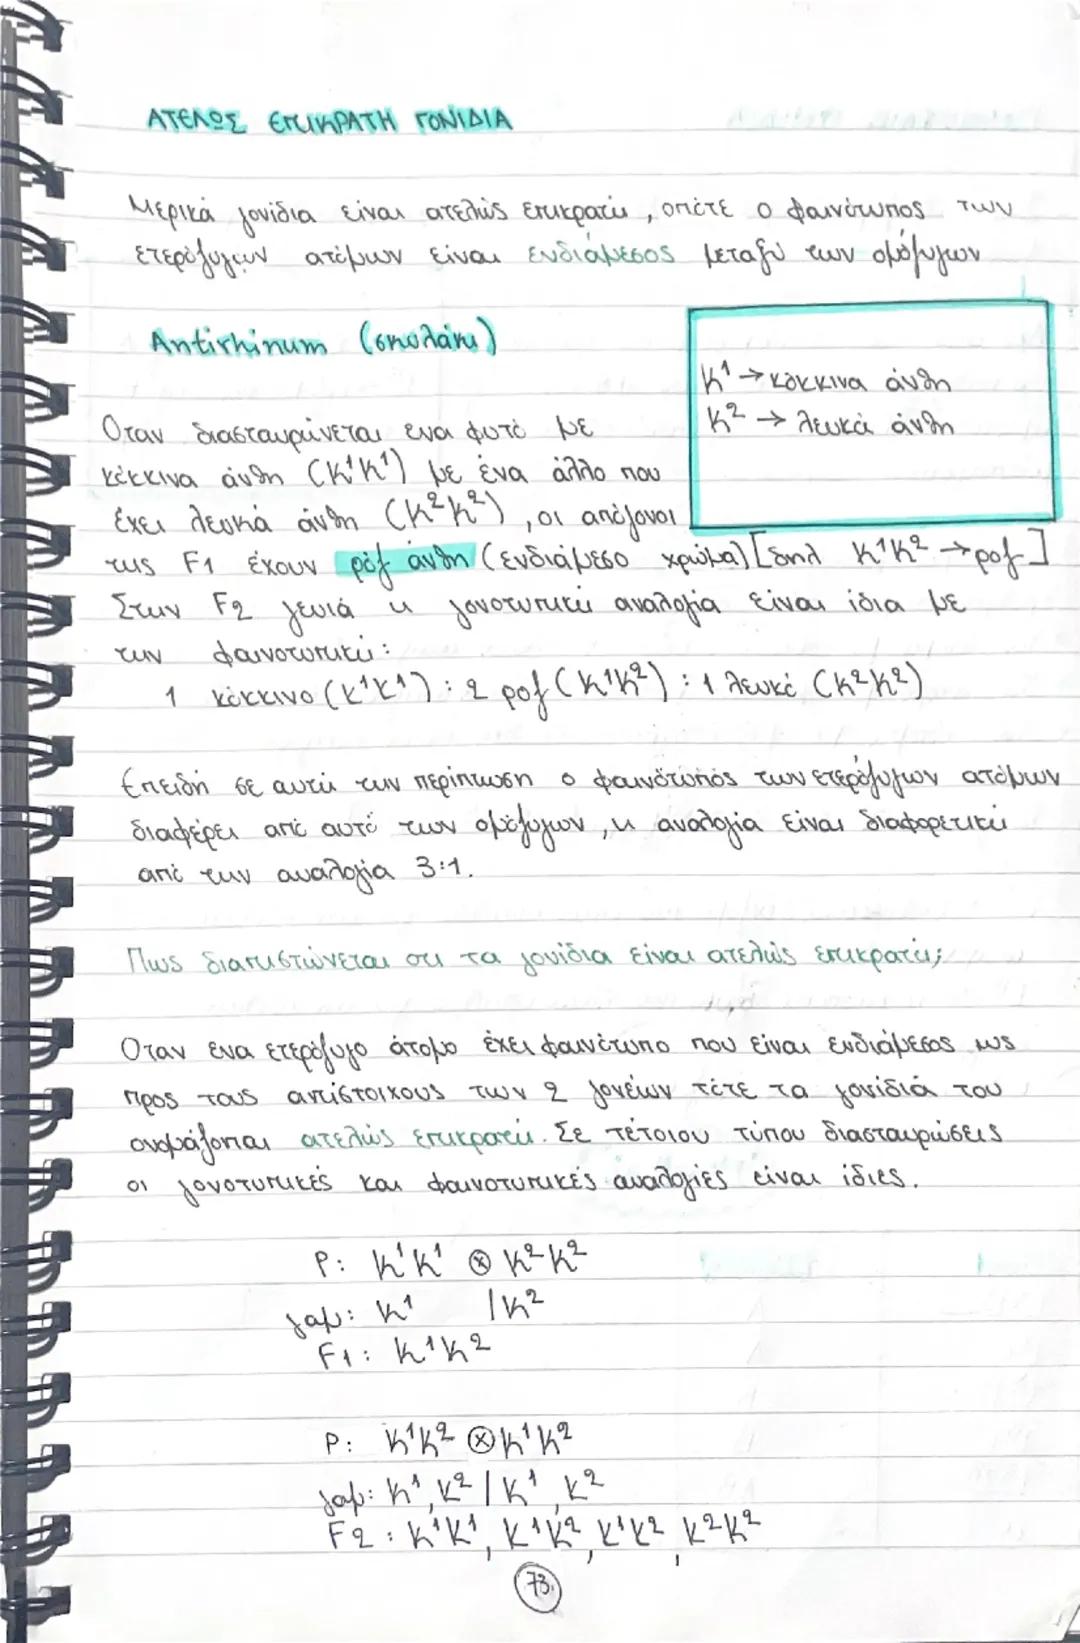 ΑΤΕΛΩΣ ΕΠΙΚΡΑΤΗ ΓΟΝΙΔΙΑ
Μερικά γονίδια είναι ατελώς επικρατή, οπότε ο φαινότυπος των
ετερόζυγων ατόμων είναι ενδιάμεσος μεταξύ των ομόζυγων
Antirhinum (σκυλάκι)
Κ¹ → κόκκινα άνθη
Κ² → λευκά άνθη
Όταν διασταυρώνεται ενα φυτό με
κόκκινα άνθη (Κ¹Κ¹) με ένα άλλο που
έχει λευκά άνθη (Κ²Κ²), οι απόγονοι
της F1 έχουν ροζ άνθη (ενδιάμεσο χρώμα) [δηλ Κ¹Κ² → ροζ]
Στην F2 γενιά η γονοτυπική αναλογία είναι ίδια με
την φαινοτυπική:
1 κόκκινο (Κ¹Κ¹) : 2 ροζ (Κ¹Κ²) : 1 λευκό (Κ²Κ²)
Επειδή σε αυτή την περίπτωση ο φαινότυπος των ετερόζυγων ατόμων
διαφέρει από αυτό των ομόζυγων, η αναλογία είναι διαφορετική
από την αναλογία 3:1.
Πως διαπιστώνεται οτι τα γονίδια είναι ατελώς επικρατή;
Όταν ενα ετερόζυγο άτομο έχει φαινότυπο που είναι ενδιάμεσος ως
προς τους αντίστοιχους των 2 γονέων τότε τα γονίδιά του
ονομάζονται ατελώς επικρατή. Σε τέτοιου τύπου διασταυρώσεις
οι γονοτυπικές και φαινοτυπικές αναλογίες είναι ίδιες.
P: Κ¹Κ¹ ⊗ Κ²Κ²
γαμ: Κ¹ / Κ²
F1: Κ¹Κ²
P: Κ¹Κ² ⊗ Κ¹Κ²
γαμ: Κ¹, Κ² / Κ¹, Κ²
F2: Κ¹Κ¹, Κ¹Κ², Κ¹Κ², Κ²Κ²
73.